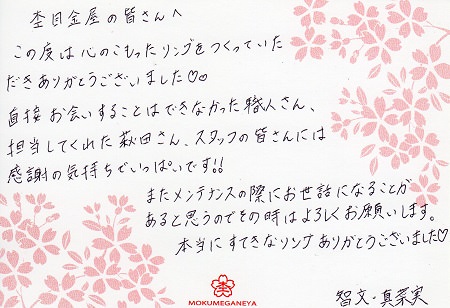 杢目金屋の皆さんへ
この度は心のこもったリングをつくっていた
だきありがとうございました♡♡
直接お会いすることはできなかった職人さん、
担当してくれた萩田さん、スタッフの皆さんには
感謝の気持ちでいっぱいです!!
またメンテナンスの際にお世話になることが
あると思うのでその時はよろしくお願いします。
本当にすてきなリングありがとうございました♡
智文・真菜実
MOKUMEGANEYA